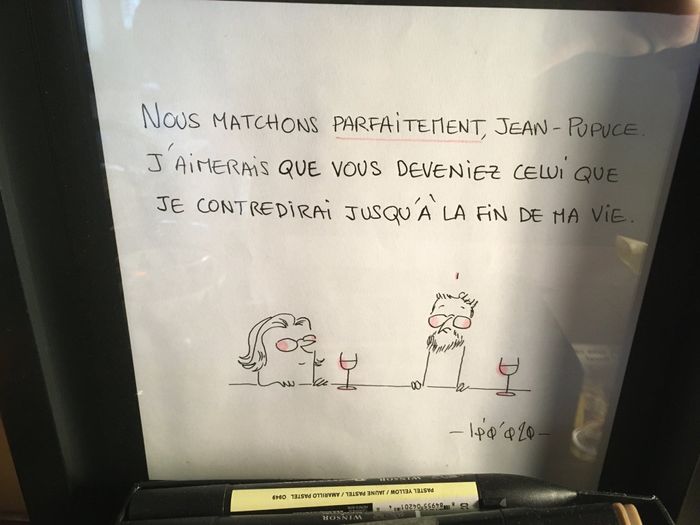 NOUS MATCHONS PARFAITEMENT, JEAN-PUPUCE.
J'AIMERAIS QUE VOUS DEVENIEZ CELUI QUE
JE CONTREDIRAI JUSQU'À LA FIN DE MA VIE.
PASTEL YELLOW / JAUNE PASTEL / AMARILLO PASTEL 0949
WINSOR
WINSOR